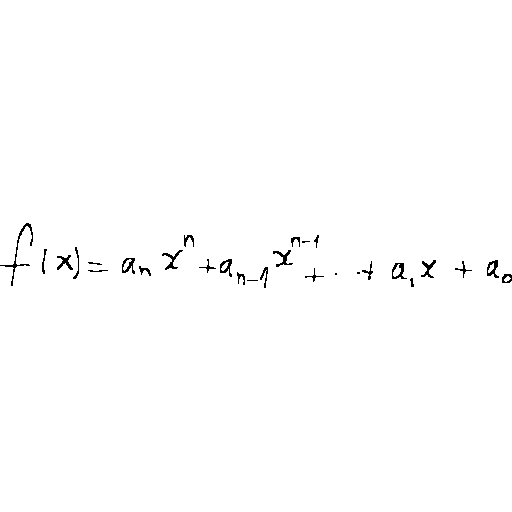 f(x) = a_n x^n + a_{n-1} x^{n-1} + . . + a_1 x + a_0